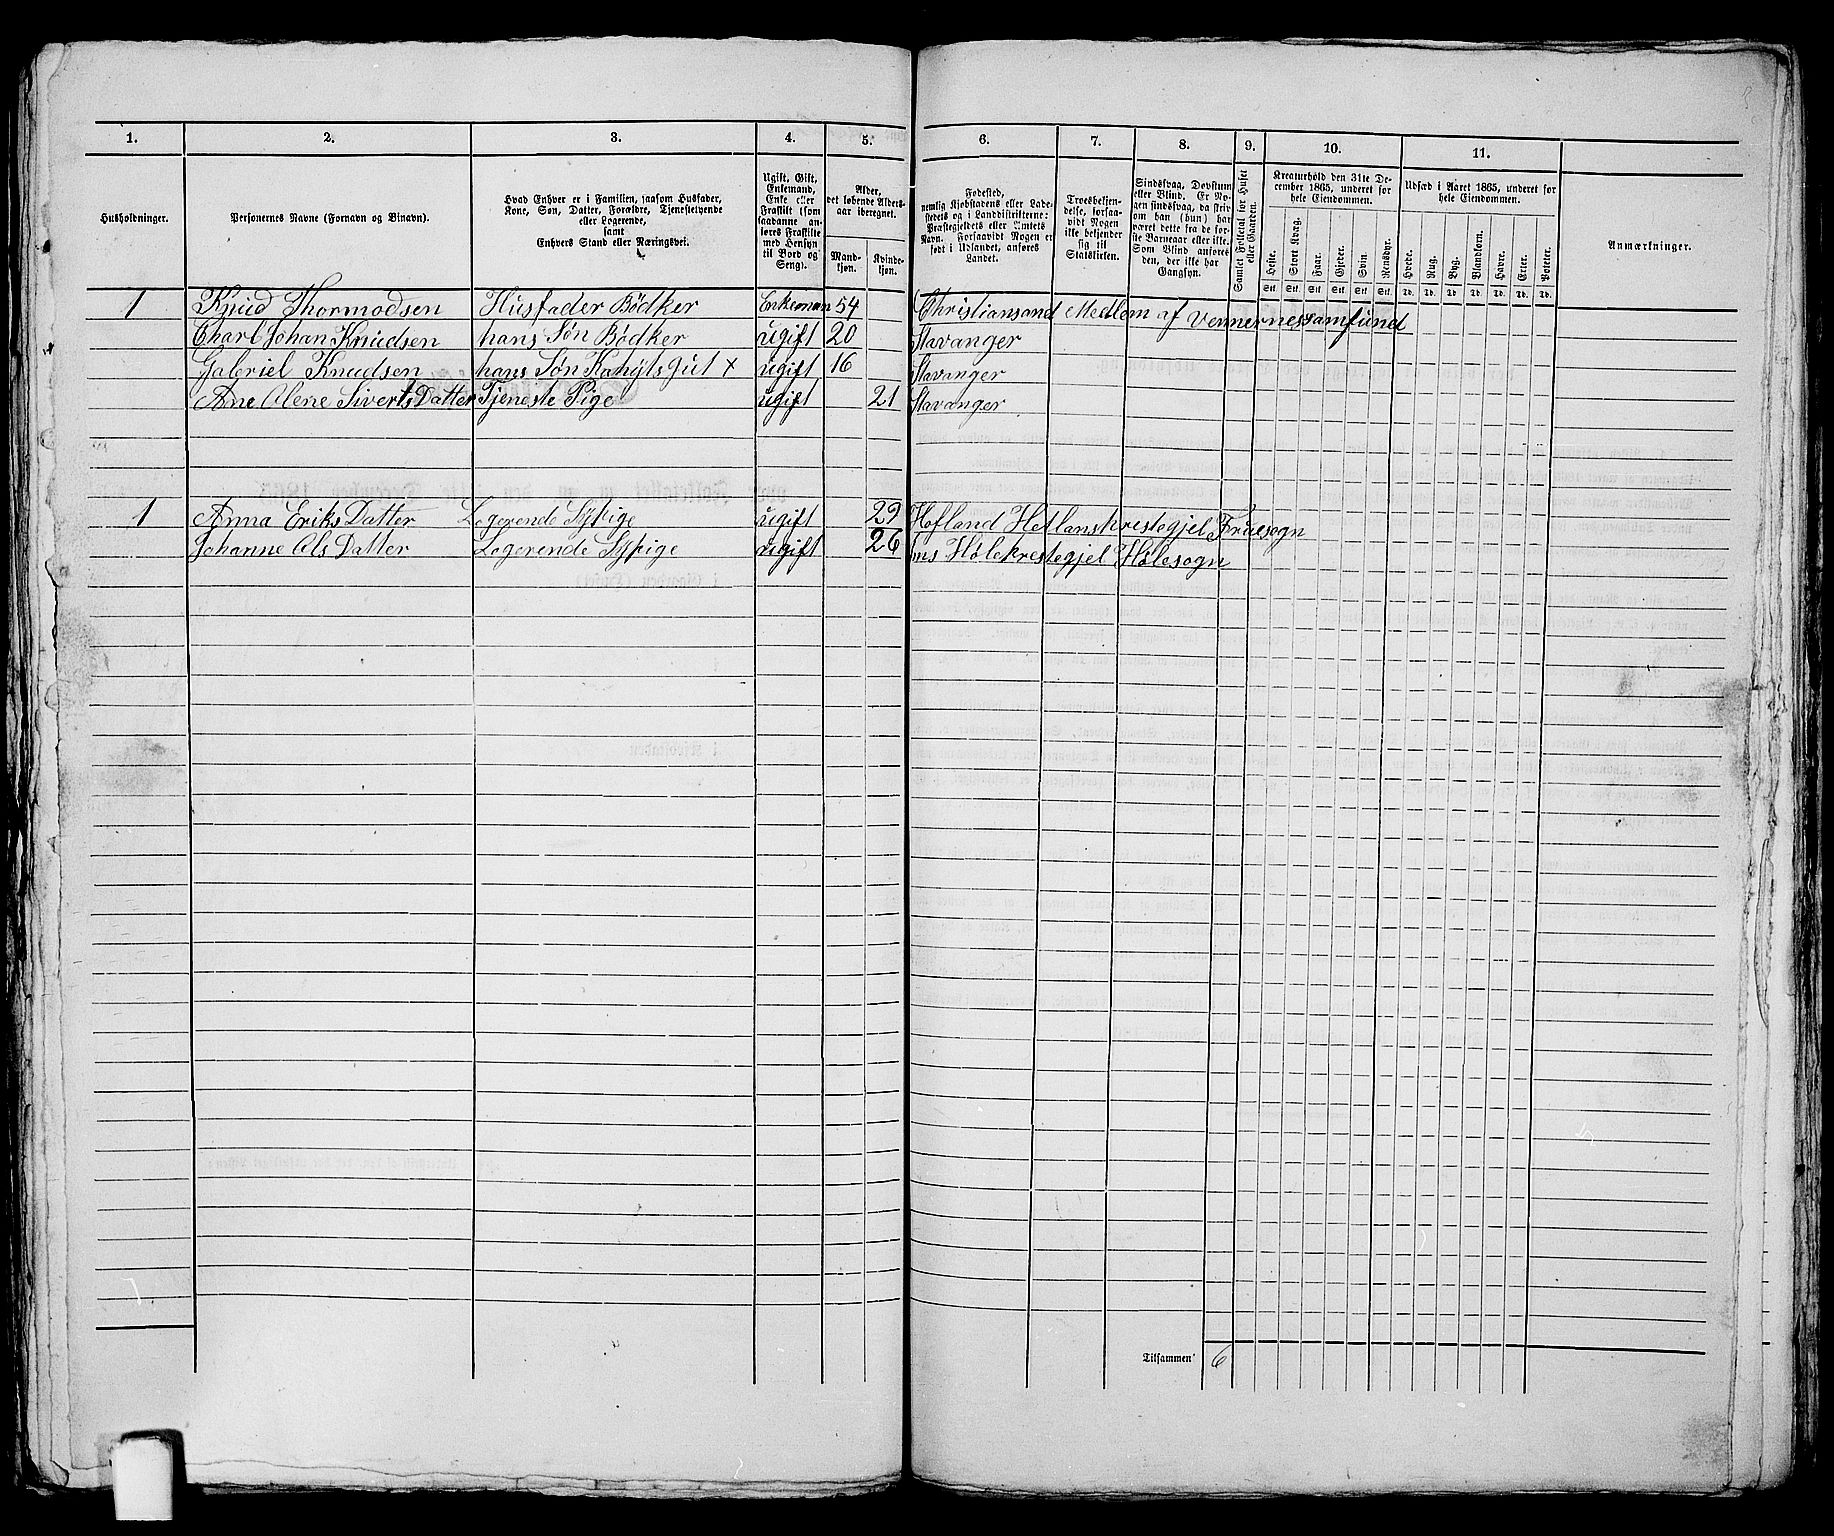 1. 2. 3. 4. 5. 6. 7. 8. 9. 10. 11.
Husholdninger.
Personernes Navne (Fornavn og Binavn).
Hvad Enhver er i Familien, saasom Husfader,
Kone, Søn, Datter, Forældre, Tjenestetyende
eller Logerende,
samt
Enhvers Stand eller Næringsvei.
Ugift, Gift,
Enkemand,
Enke eller
Fraskilt (som
saadanne an-
føres Fraskilte
med Hensyn
til Bord og
Seng).
Alder,
det løbende Alders-
aar iberegnet.
Mand-
kjøn.
Kvinde-
kjøn.
Fødested,
nemlig Kjøbstadens eller Lade-
stedets og i Landdistrikterne:
Præstegjeldets eller Amtets
Navn. Forsaavidt Nogen er
født i Udlandet, anføres
Landet.
Troesbekjen-
delse, forsaa-
vidt Nogen
ikke bekjender
sig til
Statskirken.
Sindssvag, Døvstum
eller Blind. Er No-
gen sindssvag, da skriv
om han (hun) har
været dette fra de før-
ste Barneaar eller ikke.
Som Blind anføres
den, der ikke har
Gangsyn.
Samlet Folketal for Huset
eller Gaarden.
Kreaturhold den 31te De-
cember 1865, underet for
hele Eiendommen.
Heste. Stort Kvæg. Faar. Gjeder. Svin. Rensdyr.
Stk. Stk. Stk. Stk. Stk. Stk.
Udsæd i Aaret 1865, underet for
hele Eiendommen.
Hvede. Rug. Byg. Blandkorn. Havre. Erter. Poteter.
Td. Td. Td. Td. Td. Td. Td.
Anmærkninger.
1 Knud Thormodsen Husfader Bödker Enkeman 54 Christiansand Medlem af Vennernessamfund
Charl Johan Knudsen hans Søn Bödker ugift 20 Stavanger
Gabriel Knudsen hans Søn ugift 16 Stavanger
Ane Olene Siverts Datter Tjeneste Pige ugift 21 Stavanger
1 Anna Eriks Datter Logerende Sypige ugift 29
Johanne Ols Datter Logerende Sypige ugift 26 Hølesogn
Tilsammen 6